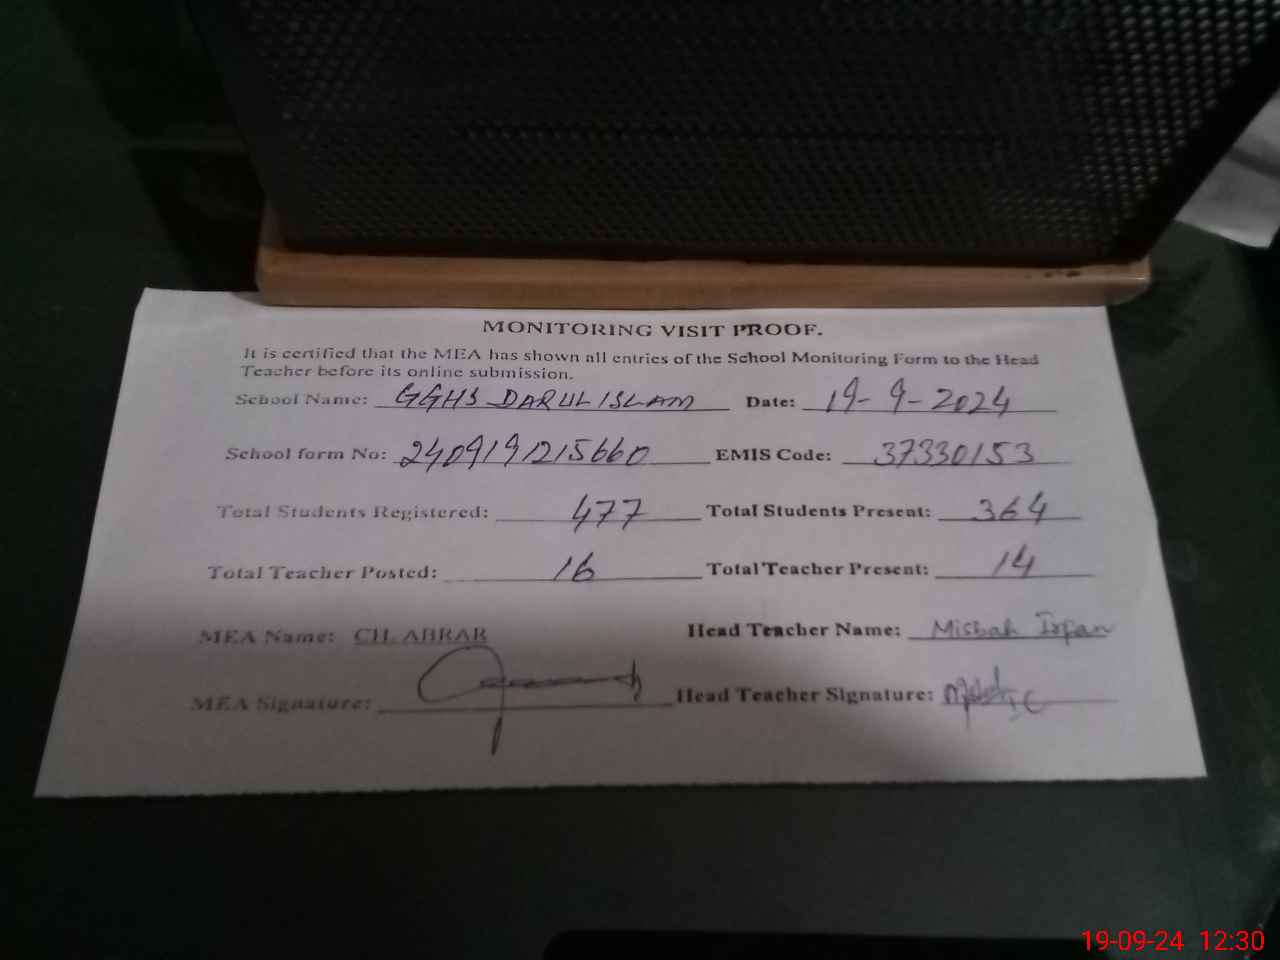 MONITORING VISIT PROOF.
It is certified that the MEA has shown all entries of the School Monitoring Form to the Head
Teacher before its online submission.
School Name: GGHS DARUL ISLAM Date: 19-9-2024
School form No: 2409191215660 EMIS Code: 37330153
Total Students Registered: 477 Total Students Present: 364
Total Teacher Posted: 16 Total Teacher Present: 14
MEA Name: CH. ABRAR Head Teacher Name: Misbah Irfan
MEA Signature: Head Teacher Signature:
19-09-24 12:30